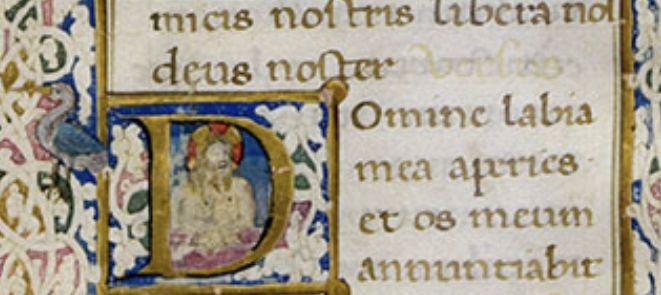 micis nostris libera nos
deus noster
Domine labia
mea apries
et os meum
annuntiabit